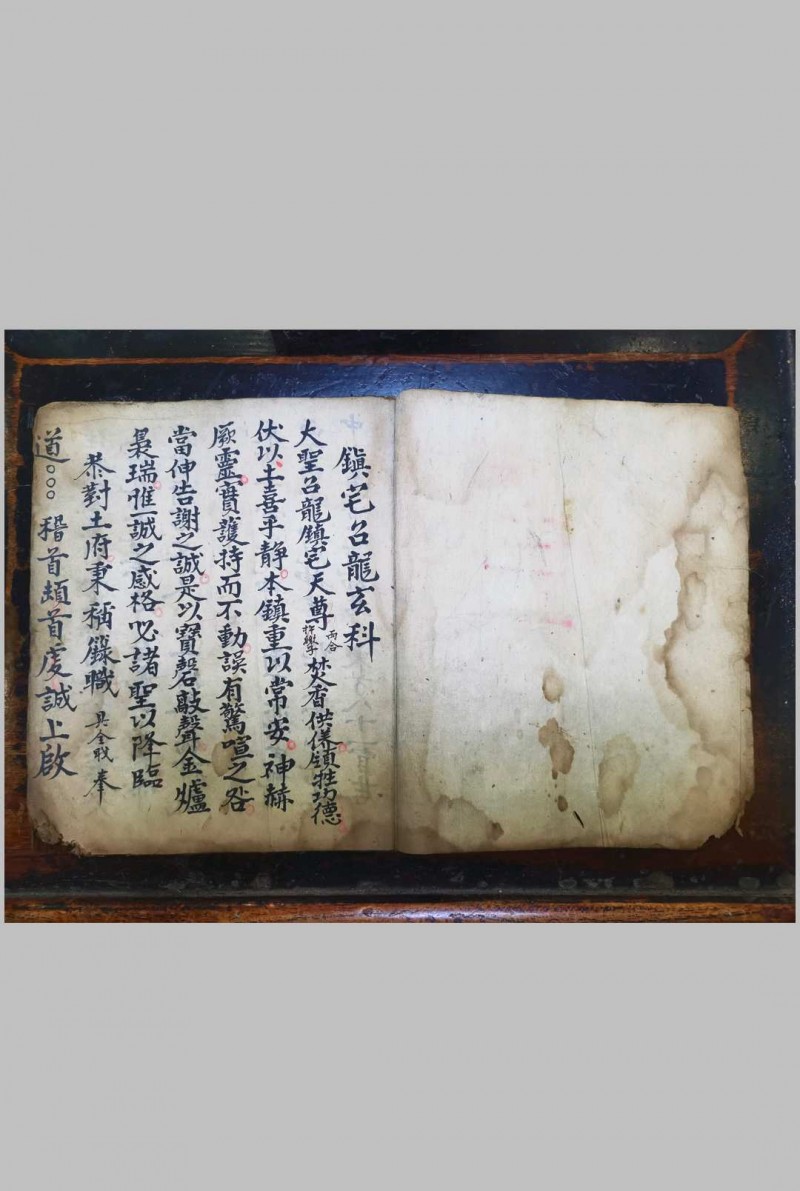 鎮宅召龍玄科
大聖召龍鎮宅天尊 両合 焚香供儀領牲功德
伏以土喜乎静本鎮重以常安神赫
厥靈實護持而不動誤有驚喧之咎
當伸告謝之誠是以寶磬敲聲金爐
裊瑞惟誠之感格必諸聖以降臨
恭對土府秉稱籙職 具全戝 奉
道○○○ 稽首頓首虔誠上啟